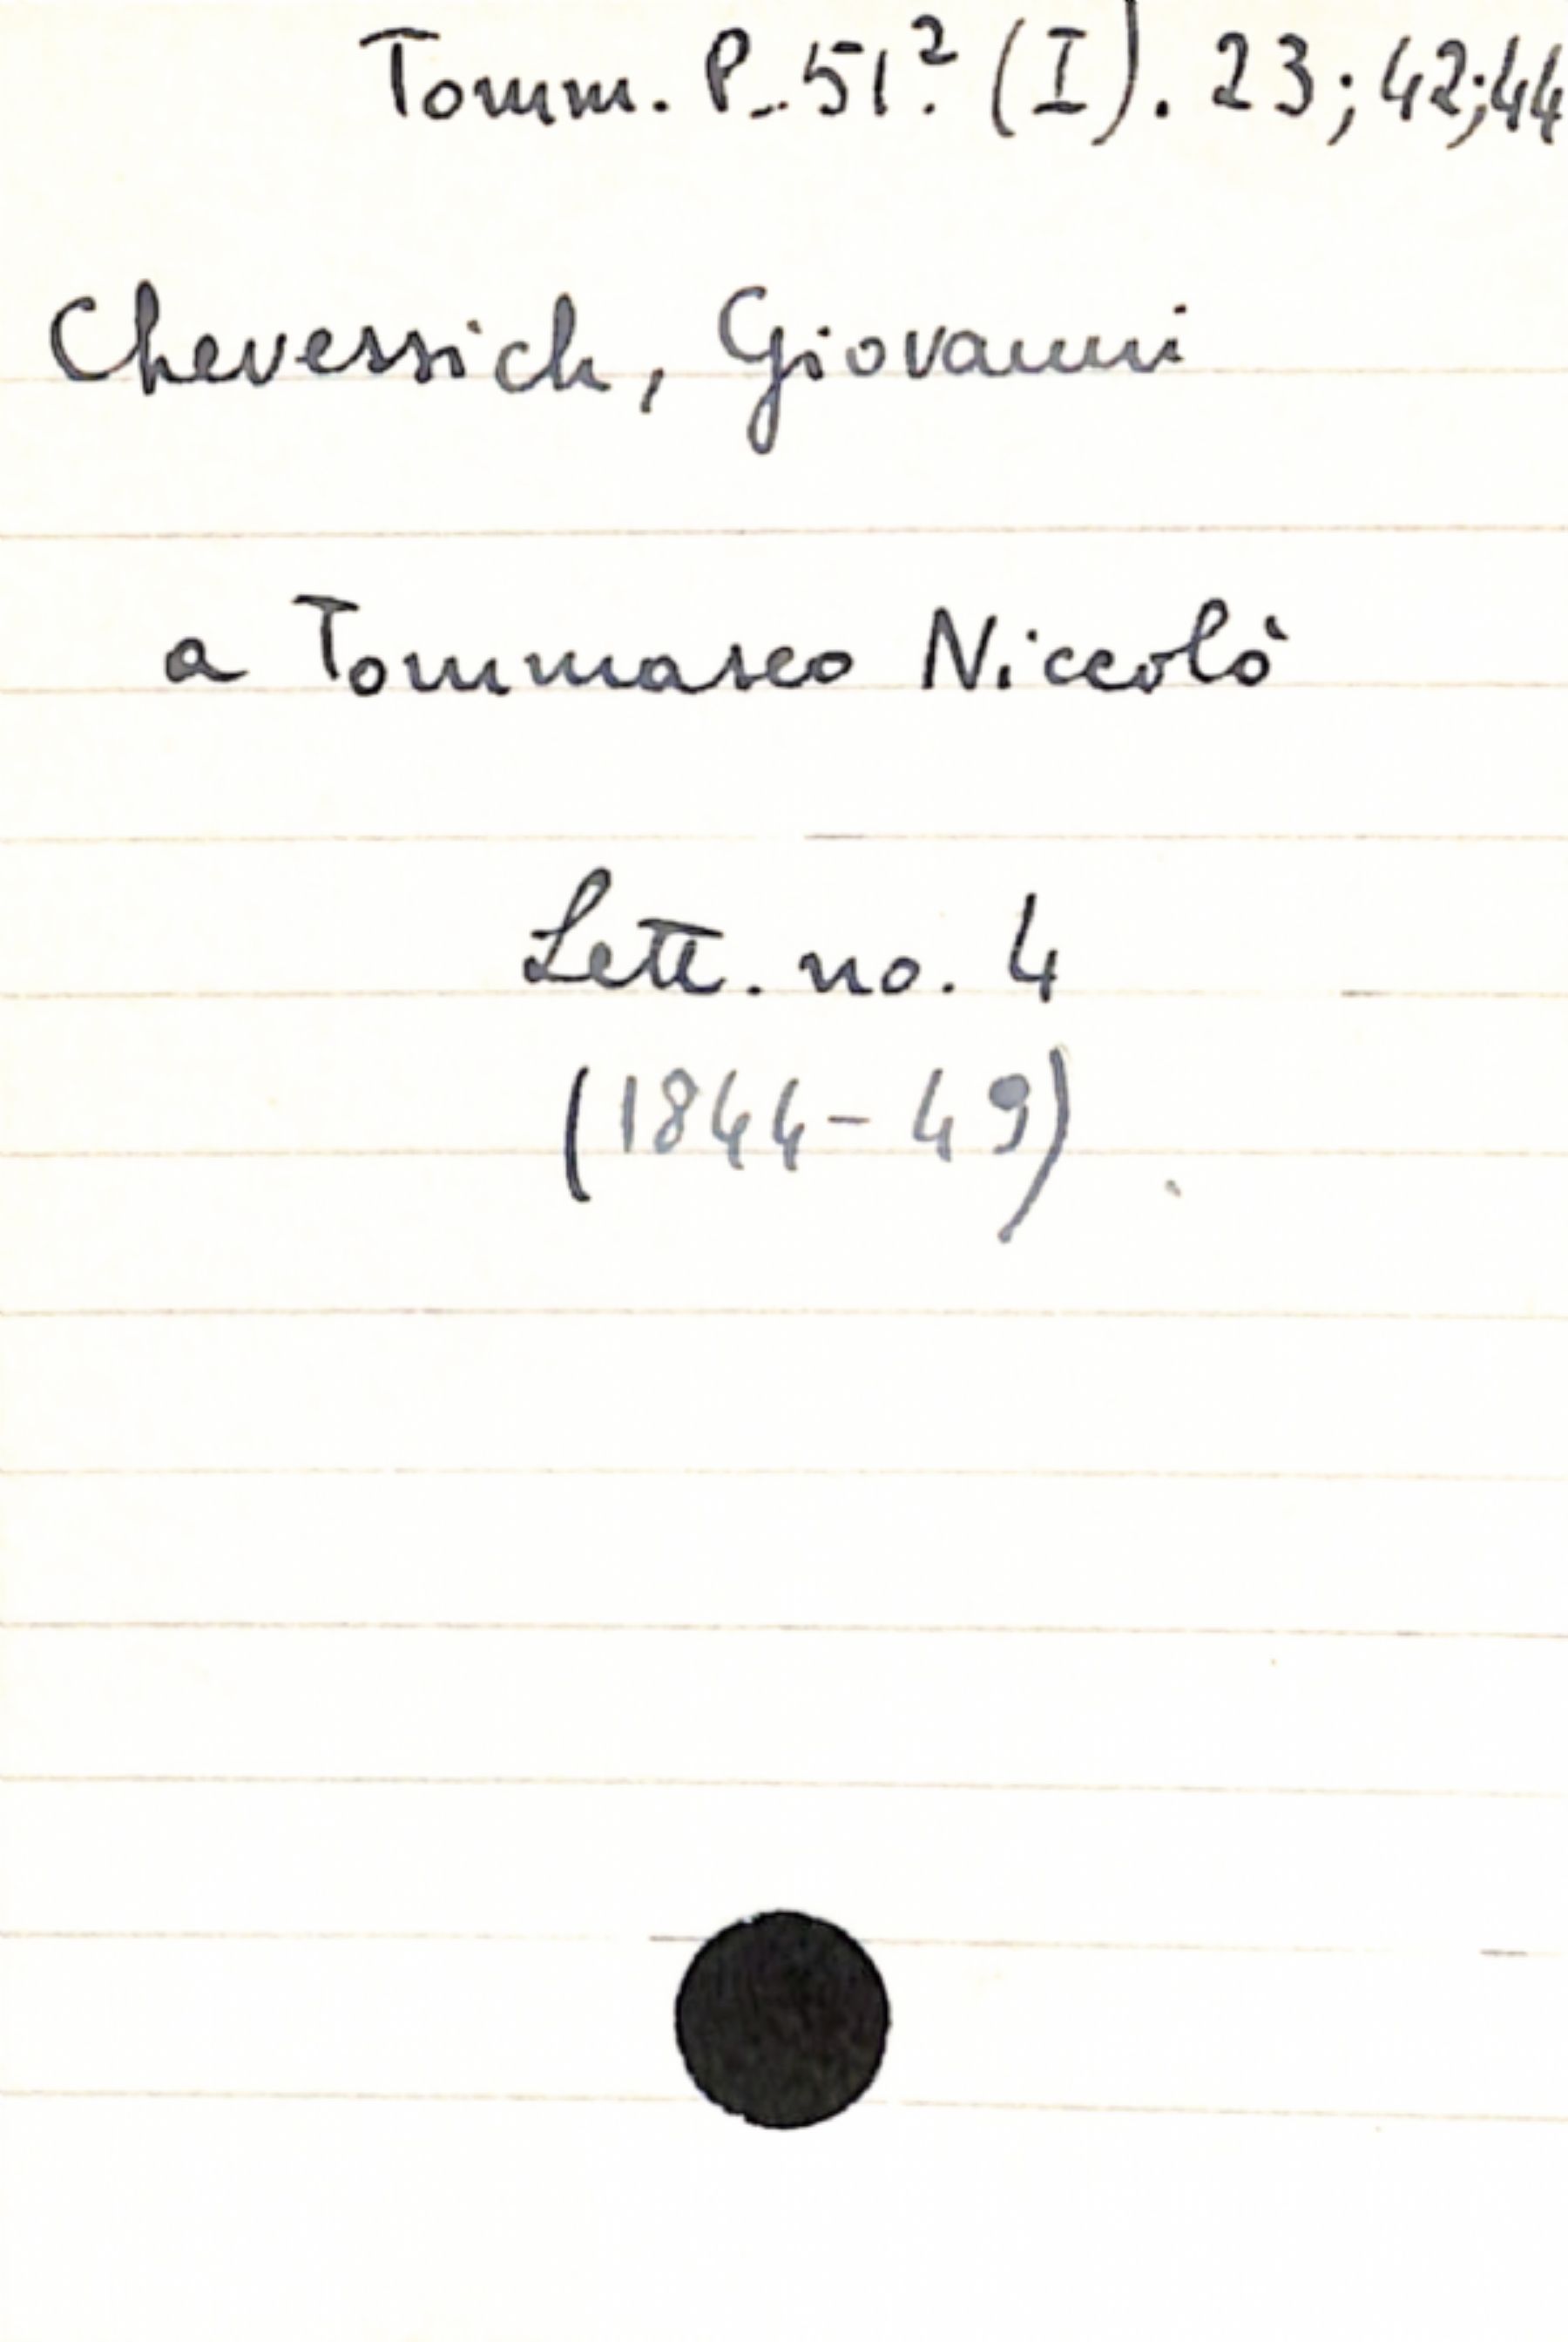 Tomm. P. 51.² (I). 23; 42; 44
Chevessich, Giovanni
a Tommaseo Niccolò
Lett. no. 4
(1844-49)